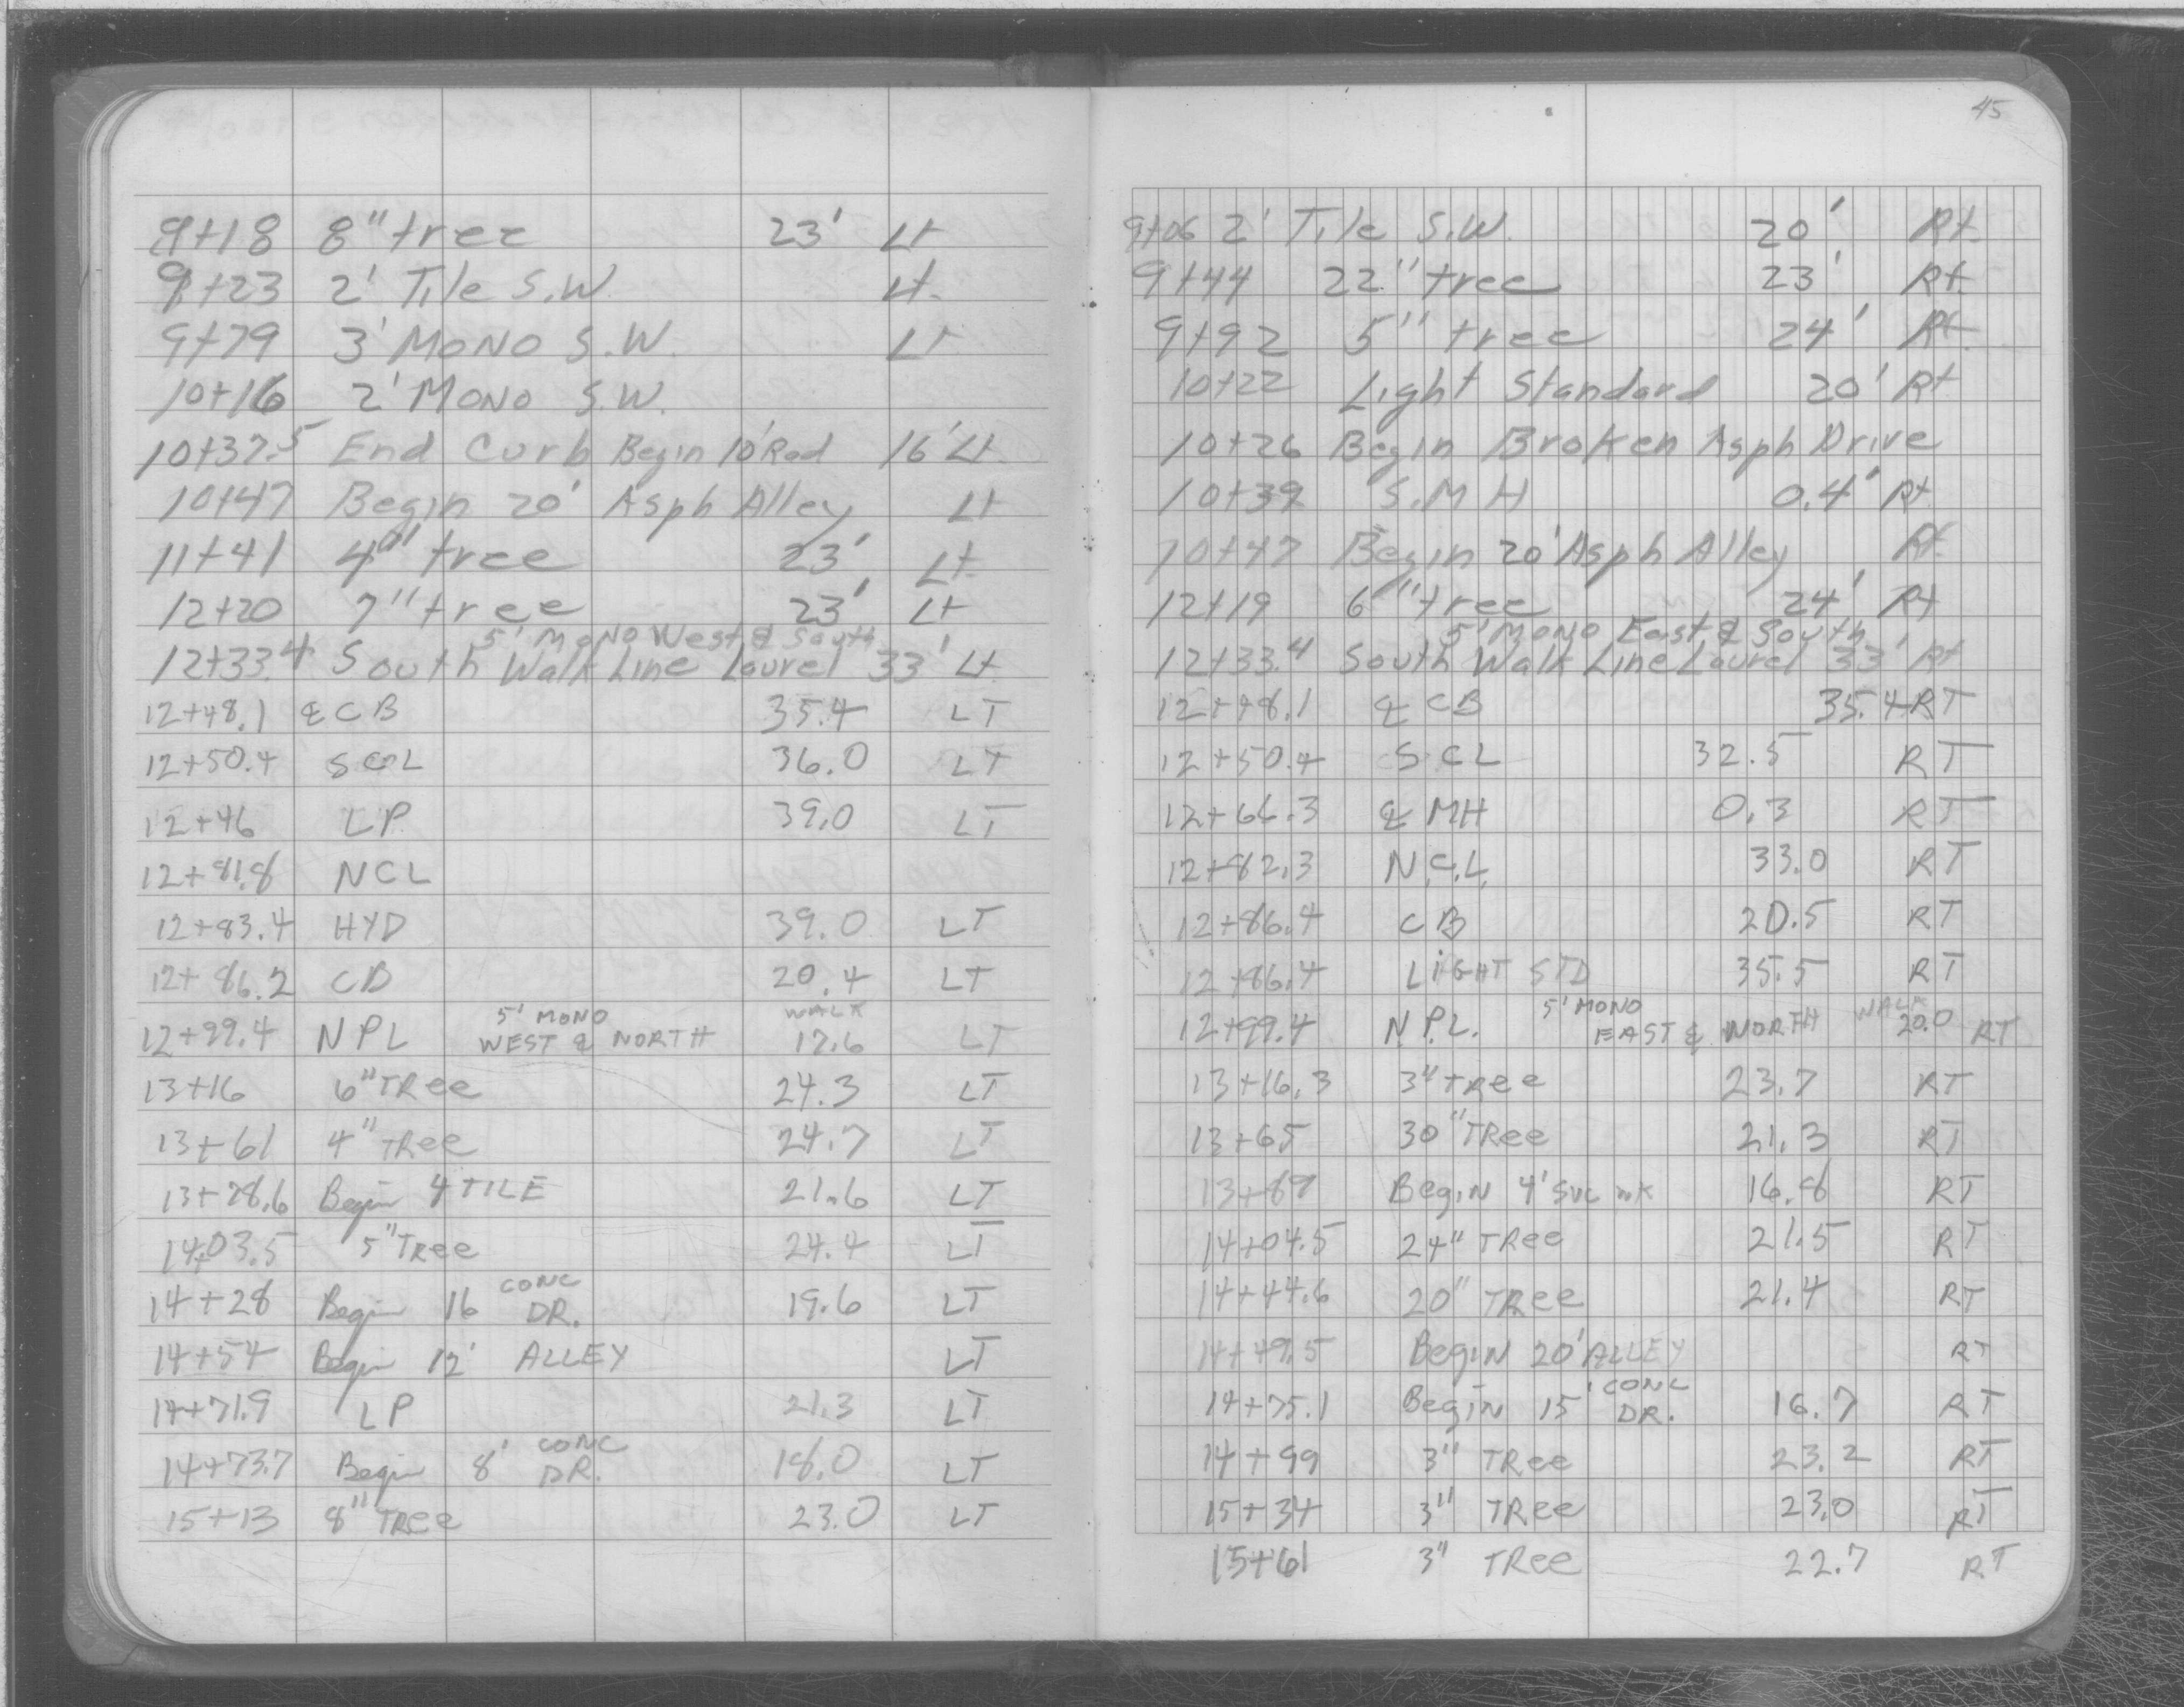 9+18 8" tree 23' Lt
9+23 2' Tile S.W. Lt.
9+79 3' MONO S.W. Lt
10+16 2' MONO S.W.
10+37.5 End Curb Begin 10' Rad 16' Lt.
10+47 Begin 20' Asph Alley Lt
11+41 4" tree 23' Lt.
12+20 7" tree 23' Lt
5' MONO West & South
12+33.4 South Walk Line Laurel 33' Lt.
12+48.1 ℄ CB 35.4 LT
12+50.4 SCL 36.0 LT
12+46 LP 39.0 LT
12+81.8 NCL
12+83.4 HYD 39.0 LT
12+86.2 CB 20.4 LT
5' MONO WALK
12+99.4 NPL WEST & NORTH 17.6 LT
13+16 6" TRee 24.3 LT
13+61 4" TRee 24.7 LT
13+78.6 Begin 4 TILE 21.6 LT
14+03.5 5" TRee 24.4 LT
CONC
14+28 Begin 16 DR. 19.6 LT
14+54 Begin 12' ALLEY LT
14+71.9 LP 21.3 LT
CONC
14+73.7 Begin 8' DR. 18.0 LT
15+13 8" TRee 23.0 LT
45
9+06 2' Tile S.W. 20' Rt.
9+44 22" tree 23' Rt.
9+92 5" tree 24' Rt.
10+22 Light Standard 20' Rt
10+26 Begin Broken Asph Drive
10+39 S.M H 0.4' Rt.
10+47 Begin 20' Asph Alley Rt.
12+19 6" tree 24' Rt
5' MONO East & South
12+33.4 South Walk Line Laurel 33' Rt
12+48.1 ℄ CB 35.4 RT
12+50.4 SCL 32.5 RT
12+66.3 ℄ MH 0.3 RT
12+82.3 N.C.L. 33.0 RT
12+86.4 CB 20.5 RT
12+86.4 LIGHT STD 35.5 RT
5' MONO WALK
12+99.4 N.P.L. EAST & NORTH 20.0 RT
13+16.3 3" tRee 23.7 RT
13+65 30" TRee 21.3 RT
13+89 BegiN 4' 16.8 RT
14+04.5 24" TRee 21.5 RT
14+44.6 20" TRee 21.4 RT
14+49.5 BegiN 20' ALLEY RT
CONC
14+75.1 BegiN 15' DR. 16.7 RT
14+99 3" TRee 23.2 RT
15+34 3" TRee 23.0 RT
15+61 3" TRee 22.7 RT